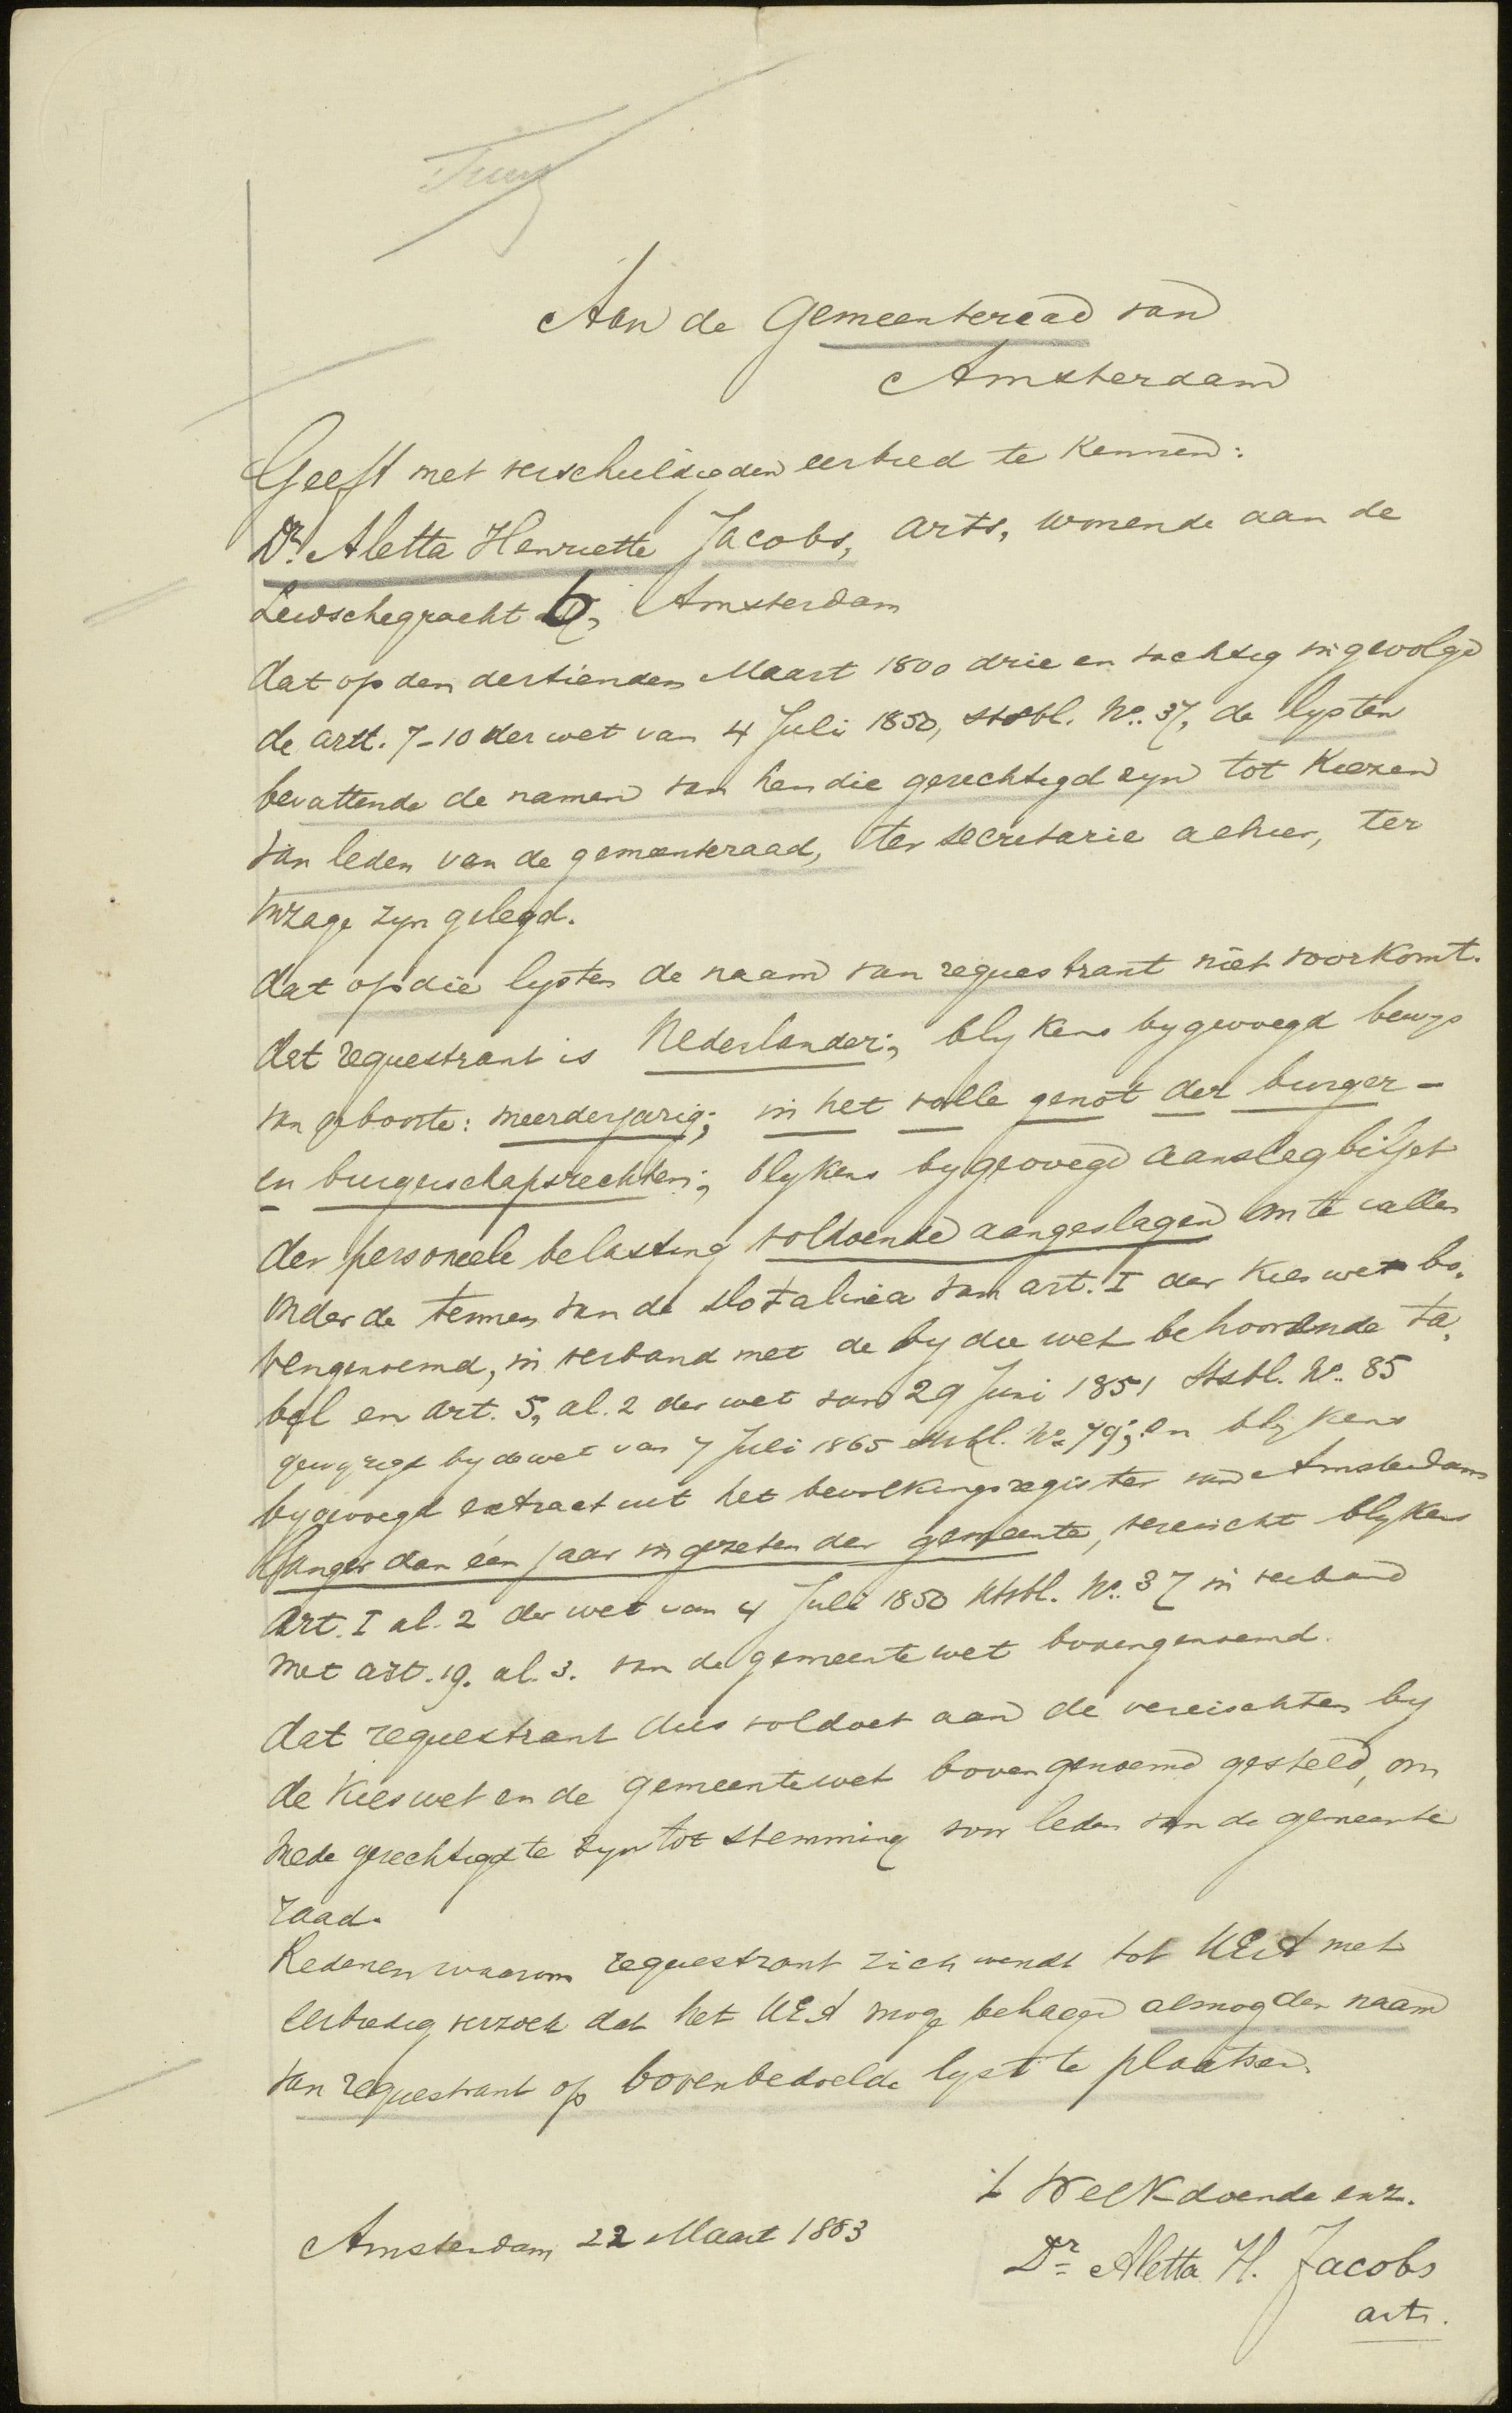 Aan de Gemeenteraad van
Amsterdam
Geeft met verschuldigden eerbied te kennen:
Dr. Aletta Henriette Jacobs, arts, wonende aan de
Leidschegracht 6, Amsterdam
dat op den dertienden Maart 1800 drie en tachtig ingevolge
de artt. 7-10 der wet van 4 Juli 1850, Stsbl. No. 37, de lysten
bevattende de namen van hen die gerechtigd zyn tot kiezen
van leden van de gemeenteraad, ter secretarie alhier, ter
inzage zyn gelegd.
dat op die lysten de naam van requestrant niet voorkomt.
dat requestrant is Nederlander; blykens bygevoegd bewys
van geboorte: meerderjarig; in het volle genot der burger-
en burgerschapsrechten; blykens bygevoegd aanslagbiljet
der personeele belasting voldoende aangeslagen om te vallen
onder de termen van de slotalinea van art. I der kieswet bo-
vengenoemd, in verband met de by die wet behoorende ta-
bel en art. 5, al. 2 der wet van 29 Juni 1851 Stsbl. No. 85
gewyzigd by de wet van 7 Juli 1865 Stsbl. No. 79; en blykens
bygevoegd extract uit het bevolkingsregister van Amsterdam
langer dan één jaar ingezeten der gemeente, vereischt blykens
Art. I al. 2 der wet van 4 Juli 1850 Stsbl. No. 37 in verband
met art. 19. al. 3. van de gemeentewet bovengenoemd.
dat requestrant dus voldoet aan de vereischten by
de Kieswet en de Gemeentewet bovengenoemd gesteld, om
mede gerechtigd te zyn tot stemming voor leden van de gemeente
raad.
Redenen waarom requestrant zich wendt tot UEA met
eerbiedig verzoek dat het UEA moge behagen alsnog den naam
van requestrant op bovenbedoelde lyst te plaatsen
't Welk doende enz.
Amsterdam 22 Maart 1883
Dr. Aletta H. Jacobs
arts.